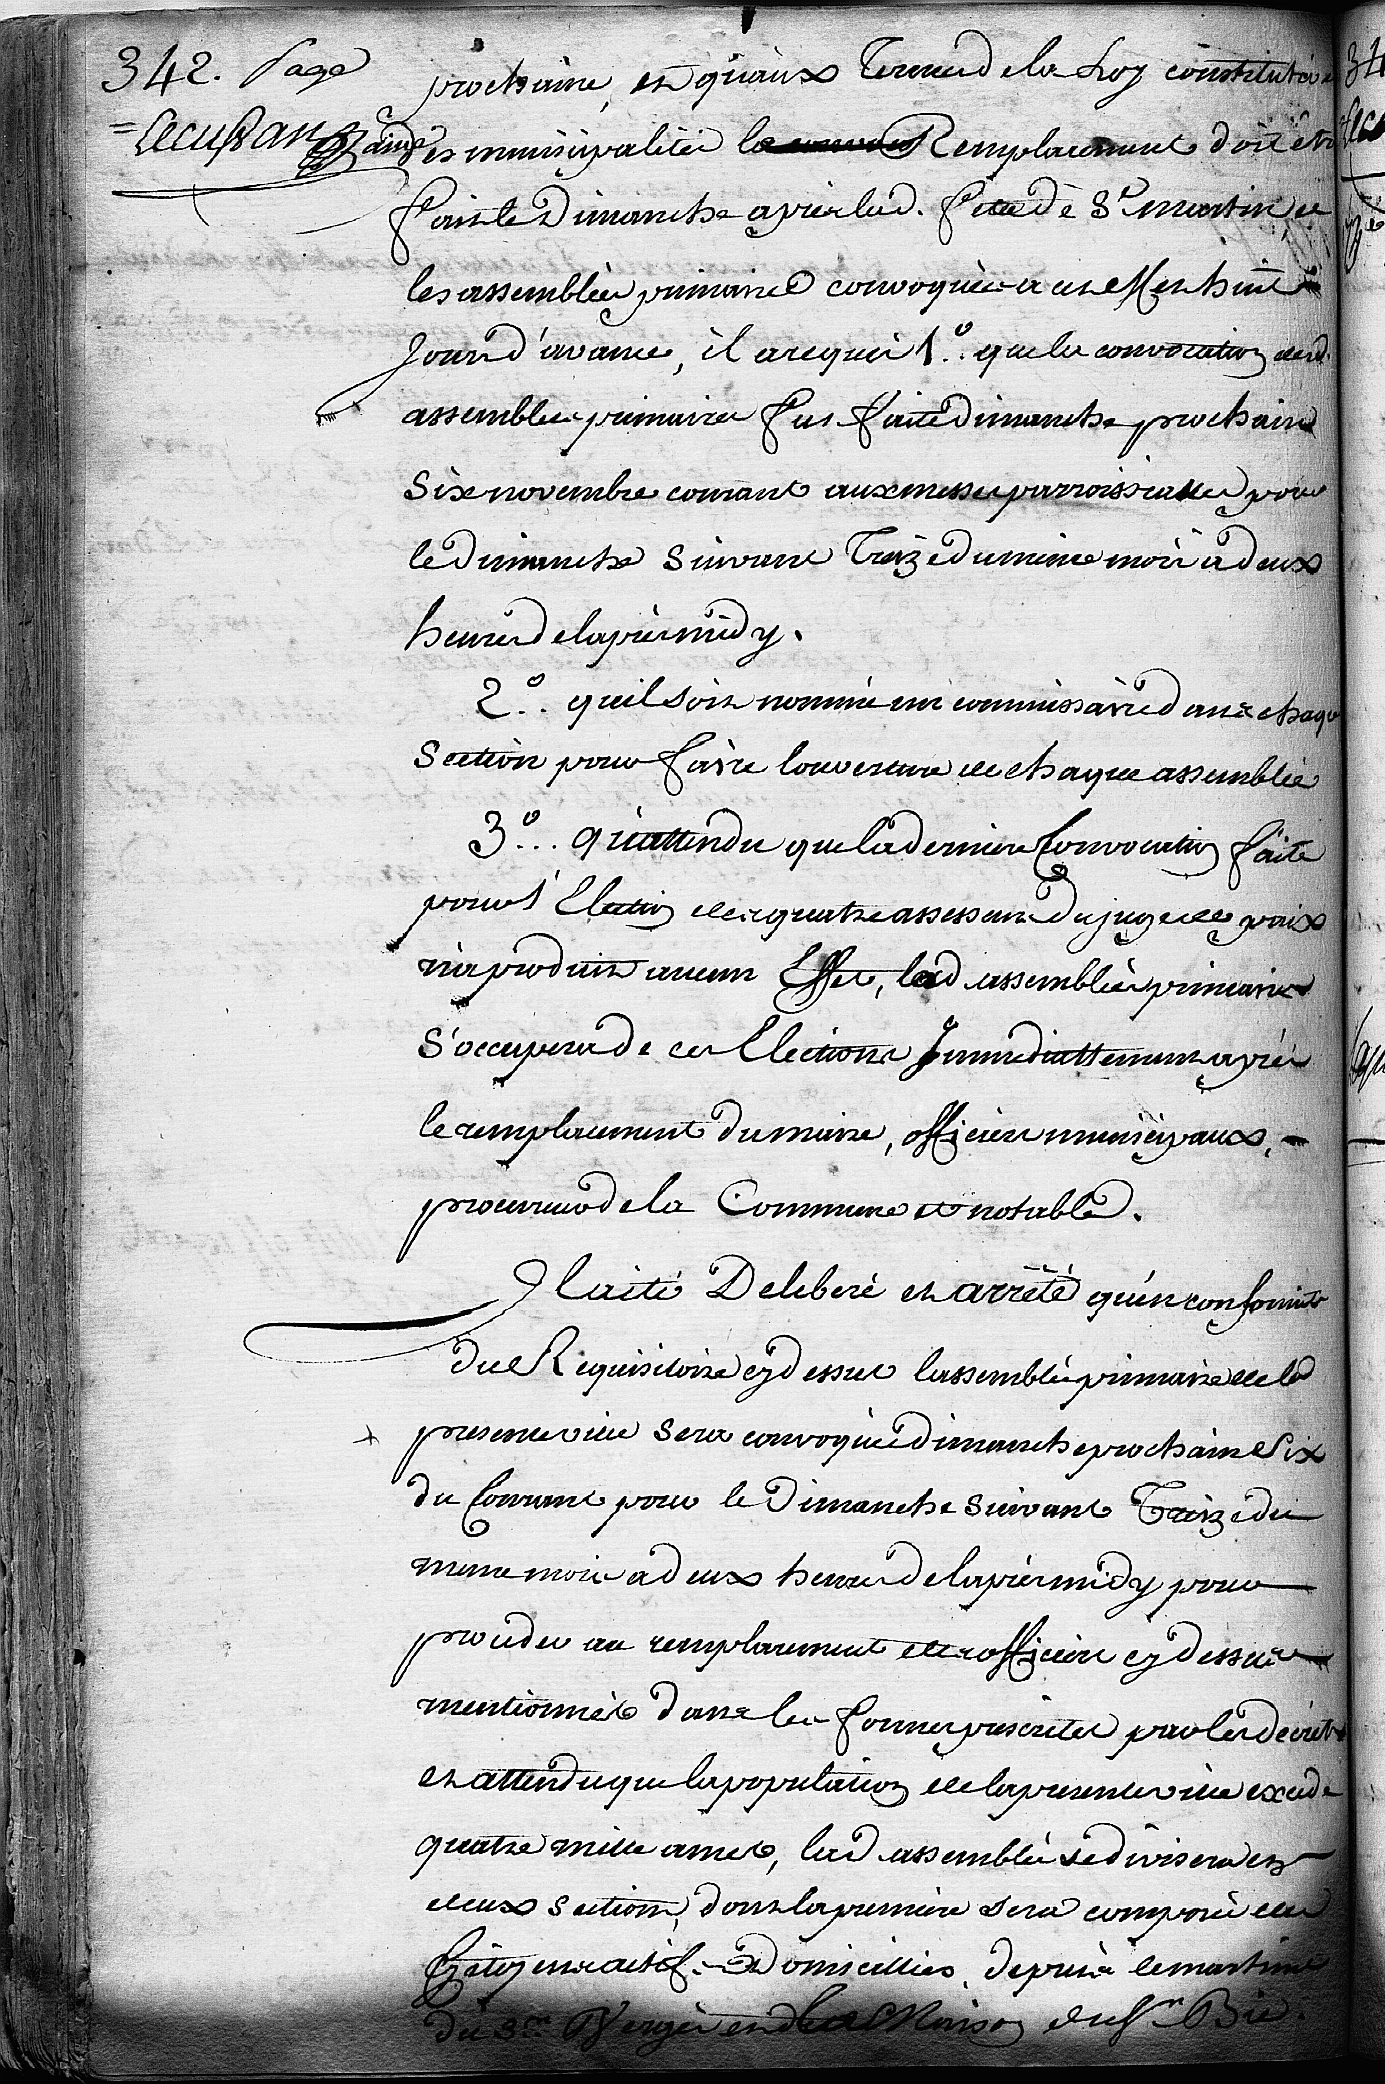 342. Page
prochaine, et qu'aux Termes de la Loy constitutive
des municipalités le Remplacement doit être
fait le Dimanche après lad. fette de St martin, et
les assemblées primaires convoquées a cet effet huit
Jours d'avance, il a requis 1.º que la convocation desd.
assemblées primaires fut faite dimanche prochain
Six novembre courant aux messes parroissialles pour
le dimanche Suivant Treize du même mois à deux
heures de laprès midy.
2.º quil soit nommé un commissaire dans chaque
Section pour faire louverture de chaque assemblée
3.º Qu'attendu que la dernière Convocation faite
pour l'Election des quatre assesseurs du juge de paix
n'a produit aucun Effet, lad assemblée primaire
S'occupera de ces Elections Immediattement après
le remplacement du maire, officiers municipaux,
procureur de la Commune et notables.
Il a été Deliberé et arrêté qu'en conformité
du Requisitoire cy dessus lassemblée primaire de la
presente ville sera convoquée dimanche prochain Six
du Courant pour le Dimanche suivant Treize du
meme mois a deux heures de laprès midy pour
proceder au remplacement des officiers cy dessus
mentionnés dans les formes prescrites par les décrets
et attendu que la population de la presente ville excede
quatre mille ames, lad assemblée se divisera en
deux sections, dont la premiere sera composée des
Citoyens actifs Domicilliés, depuis le
du Sr Verger et la Maison du Sr Bie.